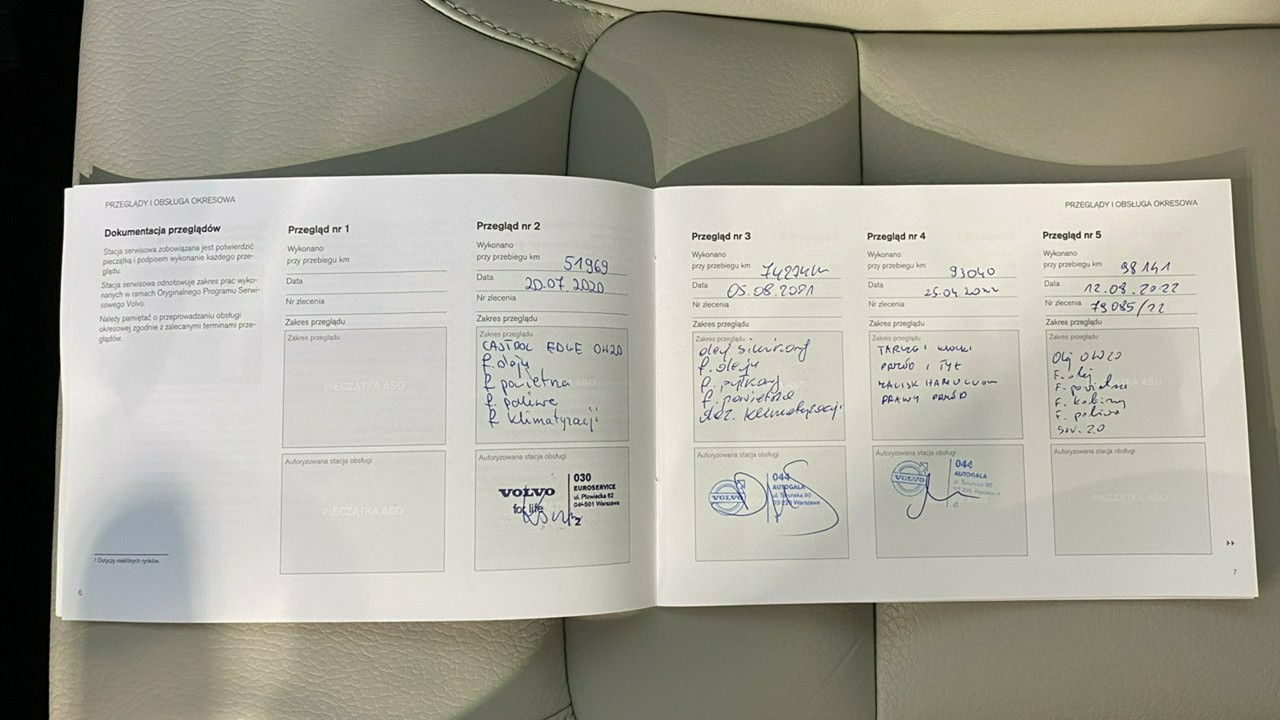 PRZEGLĄDY I OBSŁUGA OKRESOWA
Dokumentacja przeglądów
Stacja serwisowa zobowiązana jest potwierdzić
pieczątką i podpisem wykonanie każdego prze-
glądu.
Stacja serwisowa odnotowuje zakres prac wyko-
nanych w ramach Oryginalnego Programu Serwi-
sowego Volvo.
Należy pamiętać o przeprowadzaniu obsługi
okresowej zgodnie z zalecanymi terminami prze-
glądów.
Dotyczy niektórych rynków.
6
Przegląd nr 1
Wykonano
przy przebiegu km
Data
Nr zlecenia
Zakres przeglądu
Zakres przeglądu
PIECZĄTKA ASO
Autoryzowana stacja obsługi
PIECZĄTKA ASO
Przegląd nr 2
Wykonano
przy przebiegu km 51969
Data 20.07.2020
Nr zlecenia
Zakres przeglądu
Zakres przeglądu
CASTROL EDGE 0W20
f. oleju
f. powietrza
f. paliwa
f. klimatyzacji
Autoryzowana stacja obsługi
VOLVO
for life
030
EUROSERVICE
ul. Płowiecka 62
04-501 Warszawa
PRZEGLĄDY I OBSŁUGA OKRESOWA
Przegląd nr 3
Wykonano
przy przebiegu km
Data 05.08.2021
Nr zlecenia
Zakres przeglądu
Zakres przeglądu
olej silnikowy
f. oleju
f. pyłkowy
f. powietrza
klimatyzacji
Autoryzowana stacja obsługi
VOLVO
044
AUTOGALA
ul. Toruńska 90
Warszawa
Przegląd nr 4
Wykonano
przy przebiegu km 93040
Data 25.04.2022
Nr zlecenia
Zakres przeglądu
Zakres przeglądu
TARCZE I KLOCKI
PRZÓD I TYŁ
ZACISK HAMULCOWY
PRAWY PRZÓD
Autoryzowana stacja obsługi
VOLVO
044
AUTOGALA
ul. Toruńska 90
Warszawa
Przegląd nr 5
Wykonano
przy przebiegu km 98141
Data 12.08.2022
Nr zlecenia 79085/22
Zakres przeglądu
Zakres przeglądu
Olej 0W20
F. olej
F. powietrza
F. kabiny
F. paliwa
Autoryzowana stacja obsługi
PIECZĄTKA ASO
7